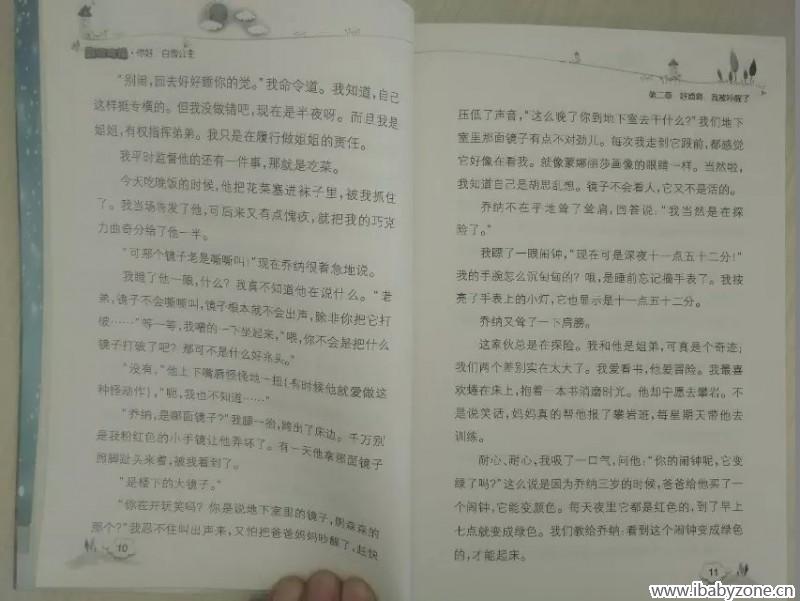 ·你好，白雪公主
“别闹，回去好好睡你的觉。”我命令道。我知道，自己
这样挺专横的。但我没做错吧，现在是半夜呀。而且我是
姐姐，有权指挥弟弟。我只是在履行做姐姐的责任。
我平时监督他的还有一件事，那就是吃菜。
今天吃晚饭的时候，他把花菜塞进袜子里，被我抓住
了。我当场告发了他，可后来又有点愧疚，就把我的巧克
力曲奇分给了他一半。
“可那个镜子老是嘶嘶叫！”现在乔纳很着急地说。
我瞪了他一眼，什么？我真不知道他在说什么。“老
弟，镜子不会嘶嘶叫，镜子根本就不会出声，除非你把它打
破……”等一等，我嗖的一下坐起来，“喂，你不会是把什么
镜子打破了吧？那可不是什么好兆头。”
“没有，”他上下嘴唇怪怪地一扭（有时候他就爱做这
种怪动作），“呃，我也不知道……”
“乔纳，是哪面镜子？”我腿一抬，跨出了床边。千万别
是我粉红色的小手镜让他弄坏了。有一天他拿那面镜子
照脚趾头来着，被我看到了。
“是楼下的大镜子。”
“你在开玩笑吗？你是说地下室里的镜子，阴森森的
那个？”我忍不住叫出声来，又怕把爸爸妈妈吵醒了，赶快
10
第二章 好消息，我被吵醒了
压低了声音，“这么晚了你到地下室去干什么？”我们地下
室里那面镜子有点不对劲儿。每次我走到它跟前，都感觉
它好像在看我。就像蒙娜丽莎画像的眼睛一样。当然啦，
我知道自己是胡思乱想。镜子不会看人，它又不是活的。
乔纳不在乎地耸了耸肩，回答说：“我当然是在探
险了。”
我瞟了一眼闹钟，“现在可是深夜十一点五十二分！”
我的手腕怎么沉甸甸的？哦，是睡前忘记摘手表了。我按
亮了手表上的小灯，它也显示是十一点五十二分。
乔纳又耸了一下肩膀。
这家伙总是在探险。我和他是姐弟，可真是个奇迹；
我们两个差别实在太大了。我爱看书，他爱冒险。我最喜
欢蜷在床上，抱着一本书消磨时光。他却宁愿去攀岩。不
是说笑话，妈妈真的帮他报了攀岩班，每星期天带他去
训练。
耐心、耐心，我吸了一口气，问他：“你的闹钟呢，它变
绿了吗？”这么说是因为乔纳三岁的时候，爸爸给他买了一
个闹钟，它能变颜色。每天夜里它都是红色的，到了早上
七点就变成绿色。我们教给乔纳：看到这个闹钟变成绿色
的，才能起床。
11
www.ibabyzone.cn